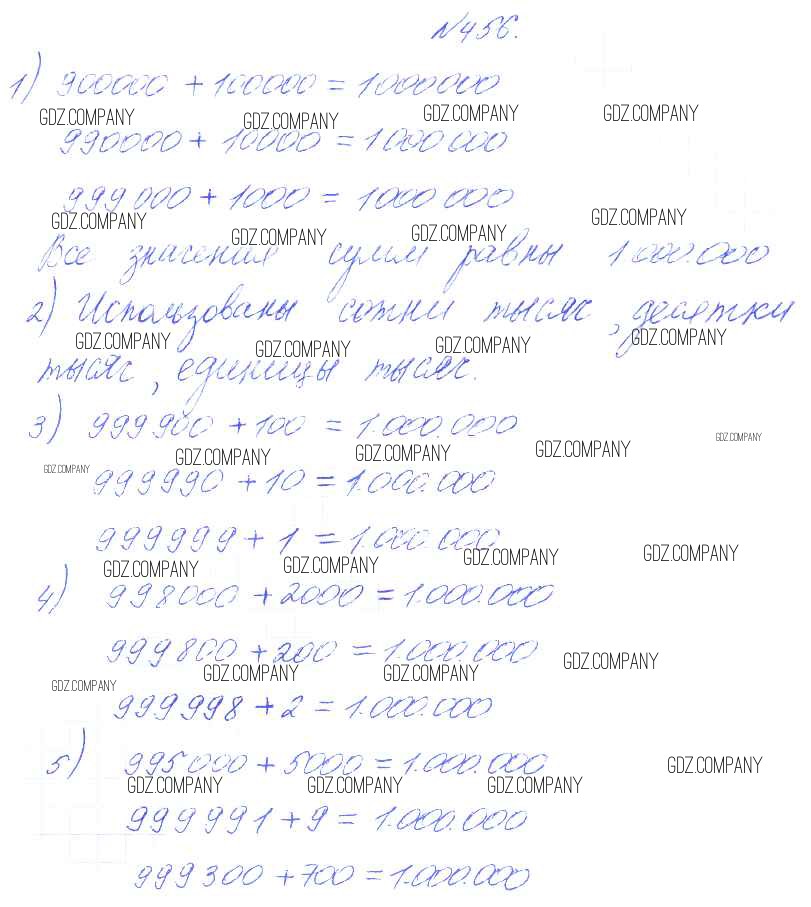 №456.
1) 900000 + 100000 = 1000000
GDZ.COMPANY GDZ.COMPANY GDZ.COMPANY GDZ.COMPANY
990000 + 10000 = 1000000
999000 + 1000 = 1000000
GDZ.COMPANY GDZ.COMPANY GDZ.COMPANY GDZ.COMPANY
Все значения сумм равны 1000.000
2) Использованы сотни тысяч, десятки
GDZ.COMPANY GDZ.COMPANY GDZ.COMPANY GDZ.COMPANY
тысяч, единицы тысяч.
3) 999900 + 100 = 1.000.000
GDZ.COMPANY GDZ.COMPANY GDZ.COMPANY GDZ.COMPANY GDZ.COMPANY
999990 + 10 = 1.000.000
999999 + 1 = 1.000.000
GDZ.COMPANY GDZ.COMPANY GDZ.COMPANY GDZ.COMPANY
4) 998000 + 2000 = 1.000.000
999800 + 200 = 1.000.000
GDZ.COMPANY GDZ.COMPANY GDZ.COMPANY GDZ.COMPANY
999998 + 2 = 1.000.000
5) 995000 + 5000 = 1.000.000
GDZ.COMPANY GDZ.COMPANY GDZ.COMPANY GDZ.COMPANY
999991 + 9 = 1.000.000
999300 + 700 = 1.000.000